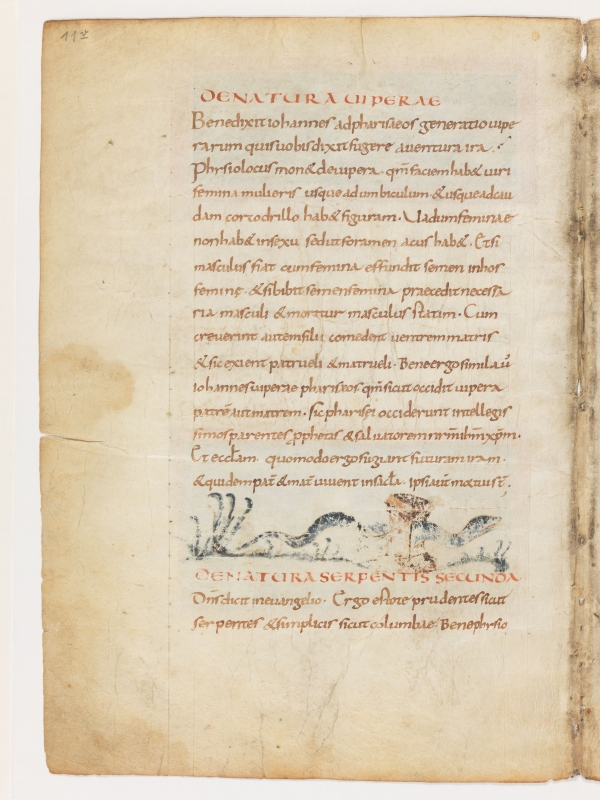 11v
DE NATURA VIPERAE
Bene dixit iohannes ad phariseos generatio vipe
rarum quis vobis dixit fugere a ventura ira.
Phisiolocus monet de vipera qm̄ faciem habet viri
femina mulieris usque ad umbiculum & usque ad cau
dam corcodrillo habet figuram. Uadum feminae
non habet in sexu sed ut foramen acus habet. Et si
masculus fiat cum femina effundit semen in hos
feminę & si bibit semen femina praecedit necessa
ria masculi & moritur masculus statim. Cum
creverint autem filii comedent ventrem matris
& sic exient patrueli & matrueli. Bene ergo similavit
iohannes viperae phariseos qm̄ sicut occidit vipera
patrē aut matrem. sic pharisei occiderunt intellegi
simos parentes pphetas & salvatorem nrm ihm xpm.
Et eccłam. quomodo ergo fugiant futuram iram.
& quidem pat̄ & mat̄ vivent in
DE NATURA SERPENTIS SECUNDA
Dn̄s dicit in evangelio. Ergo estote prudentes sicut
serpentes & simplicis sicut columbae. Bene phisio